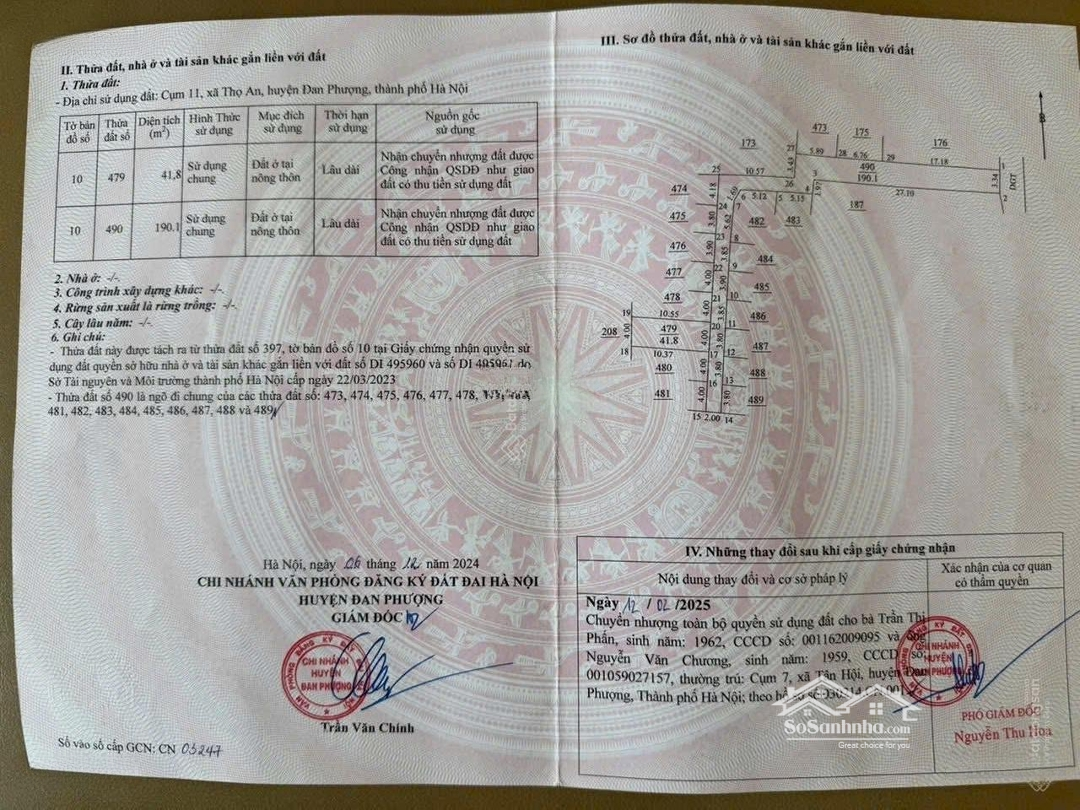 II. Thửa đất, nhà ở và tài sản khác gắn liền với đất
1. Thửa đất:
- Địa chỉ sử dụng đất: Cụm 11, xã Thọ An, huyện Đan Phượng, thành phố Hà Nội
Tờ bản đồ số | Thửa đất số | Diện tích (m²) | Hình Thức sử dụng | Mục đích sử dụng | Thời hạn sử dụng | Nguồn gốc sử dụng
10 | 479 | 41,8 | Sử dụng chung | Đất ở tại nông thôn | Lâu dài | Nhận chuyển nhượng đất được Công nhận QSDĐ như giao đất có thu tiền sử dụng đất
10 | 490 | 190.1 | Sử dụng chung | Đất ở tại nông thôn | Lâu dài | Nhận chuyển nhượng đất được Công nhận QSDĐ như giao đất có thu tiền sử dụng đất
2. Nhà ở: -/-
3. Công trình xây dựng khác: -/-
4. Rừng sản xuất là rừng trồng: -/-
5. Cây lâu năm: -/-
6. Ghi chú:
- Thửa đất này được tách ra từ thửa đất số 397, tờ bản đồ số 10 tại Giấy chứng nhận quyền sử
dụng đất quyền sở hữu nhà ở và tài sản khác gắn liền với đất số DI 495960 và số DI 495961 do
Sở Tài nguyên và Môi trường thành phố Hà Nội cấp ngày 22/03/2023
- Thửa đất số 490 là ngõ đi chung của các thửa đất số: 473, 474, 475, 476, 477, 478,
481, 482, 483, 484, 485, 486, 487, 488 và 489
Hà Nội, ngày 06 tháng 12 năm 2024
CHI NHÁNH VĂN PHÒNG ĐĂNG KÝ ĐẤT ĐAI HÀ NỘI
HUYỆN ĐAN PHƯỢNG
GIÁM ĐỐC
CHI NHÁNH
HUYỆN
ĐAN PHƯỢNG
Trần Văn Chính
Số vào số cấp GCN: CN 05247
III. Sơ đồ thửa đất, nhà ở và tài sản khác gắn liền với đất
B
473 175 176
173 27 5.89 28 6.76 29 17.18 1
490
25 10.57 3.43 3 190.1 3.34 ĐGT
474 4.18 1.60 26 4 1.97 27.19 2
6 5.12 5 5.15 187
475 3.80 24 7 5.62 482 483
476 3.90 23 8 3.85 484
477 4.00 22 9 3.90 485
478 4.00 21 10 3.85 486
19 10.55 20 11
208 4.00 479 4.00 3.80 487
41.8
18 10.37 17 12
480 4.00 3.80 488
16 13
481 4.00 3.80 489
15 2.00 14
IV. Những thay đổi sau khi cấp giấy chứng nhận
Nội dung thay đổi và cơ sở pháp lý
Xác nhận của cơ quan
có thẩm quyền
Ngày 12 / 02 /2025
Chuyển nhượng toàn bộ quyền sử dụng đất cho bà Trần Thị
Phấn, sinh năm: 1962, CCCD số: 001162009095 và ông
Nguyễn Văn Chương, sinh năm: 1959, CCCD số:
001059027157, thường trú: Cụm 7, xã Tân Hội, huyện Đan
Phượng, Thành phố Hà Nội; theo hồ sơ số
CHI NHÁNH
HUYỆN
PHÓ GIÁM ĐỐC
Nguyễn Thu Hoa
SoSanhnha.com
Great choice for you